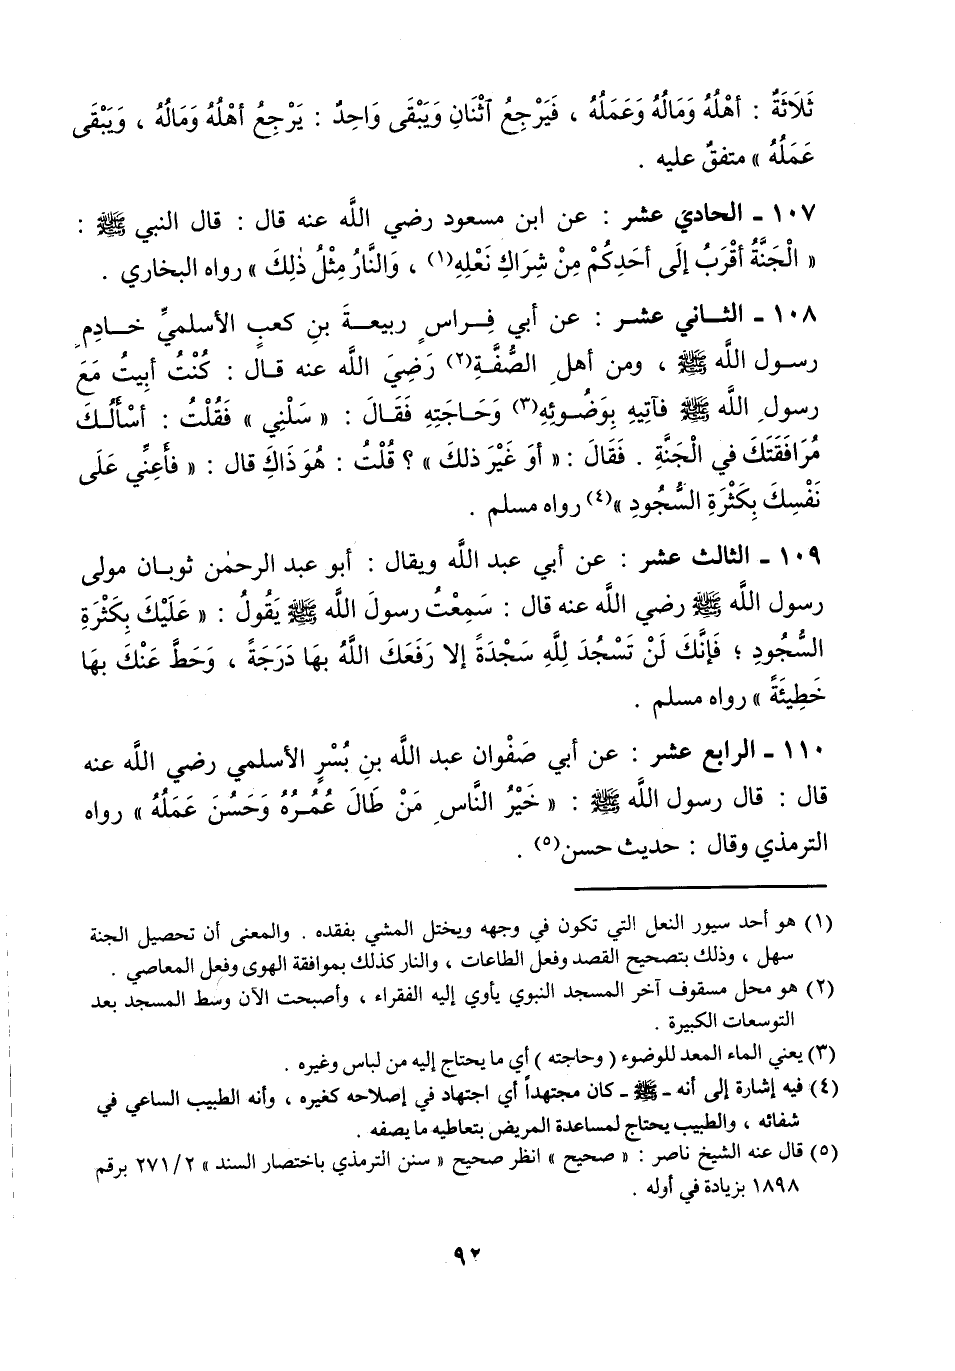 ثَلَاثَةٌ : أهْلُهُ وَمَالُهُ وَعَمَلُهُ ، فَيَرْجِعُ ٱثْنَانِ وَيَبْقَى وَاحِدٌ : يَرْجِعُ أهْلُهُ وَمَالُهُ ، وَيَبْقَى
عَمَلُهُ » متفقٌ عليه .
١٠٧ ـ الحادي عشر : عن ابن مسعود رضي اللَّه عنه قال : قال النبي ﷺ :
« الْجَنَّةُ أقْرَبُ إلَى أحَدِكُمْ مِنْ شِرَاكِ نَعْلِهِ(١) ، وَالنَّارُ مِثْلُ ذٰلِكَ » رواه البخاري .
١٠٨ ـ الثاني عشر : عن أبي فِراسٍ ربيعةَ بنِ كعبٍ الأسلميِّ خادِمِ
رسول اللَّه ﷺ ، ومن أهلِ الصُّفَّةِ(٢) رَضِيَ اللَّه عنه قال : كُنْتُ أبيتُ مَعَ
رسولِ اللَّه ﷺ فآتِيهِ بِوَضُوئِهِ(٣) وَحَاجَتِهِ فَقَالَ : « سَلْنِي » فَقُلْتُ : أسْأَلُكَ
مُرَافَقَتَكَ في الْجَنَّةِ . فَقَالَ : « أوَ غَيْرَ ذلكَ » ؟ قُلْتُ : هُوَ ذَاكَ قال : « فأَعِنِّي عَلَى
نَفْسِكَ بِكَثْرَةِ السُّجُودِ »(٤) رواه مسلم .
١٠٩ ـ الثالث عشر : عن أبي عبد اللَّه ويقال : أبو عبد الرحمٰن ثوبان مولى
رسول اللَّه ﷺ رضي اللَّه عنه قال : سَمِعْتُ رسولَ اللَّه ﷺ يَقُولُ : « عَلَيْكَ بِكَثْرَةِ
السُّجُودِ ؛ فَإنَّكَ لَنْ تَسْجُدَ لِلَّهِ سَجْدَةً إلا رَفَعَكَ اللَّهُ بِهَا دَرَجَةً ، وَحَطَّ عَنْكَ بِهَا
خَطِيئَةً » رواه مسلم .
١١٠ ـ الرابع عشر : عن أبي صَفْوان عبد اللَّه بنِ بُسْرٍ الأسلمي رضي اللَّه عنه
قال : قال رسول اللَّه ﷺ : « خَيْرُ النَّاسِ مَنْ طَالَ عُمُرُهُ وَحَسُنَ عَمَلُهُ » رواه
الترمذي وقال : حديث حسن(٥) .
(١) هو أحد سيور النعل التي تكون في وجهه ويختل المشي بفقده . والمعنى أن تحصيل الجنة
سهل ، وذلك بتصحيح القصد وفعل الطاعات ، والنار كذلك بموافقة الهوى وفعل المعاصي .
(٢) هو محل مسقوف آخر المسجد النبوي يأوي إليه الفقراء ، وأصبحت الآن وسط المسجد بعد
التوسعات الكبيرة .
(٣) يعني الماء المعد للوضوء ( وحاجته ) أي ما يحتاج إليه من لباس وغيره .
(٤) فيه إشارة إلى أنه ـ ﷺ ـ كان مجتهداً أي اجتهاد في إصلاحه كغيره ، وأنه الطبيب الساعي في
شفائه ، والطبيب يحتاج لمساعدة المريض بتعاطيه ما يصفه .
(٥) قال عنه الشيخ ناصر : « صحيح » انظر صحيح « سنن الترمذي باختصار السند » ٢٧١/٢ برقم
١٨٩٨ بزيادة في أوله .
٩٢